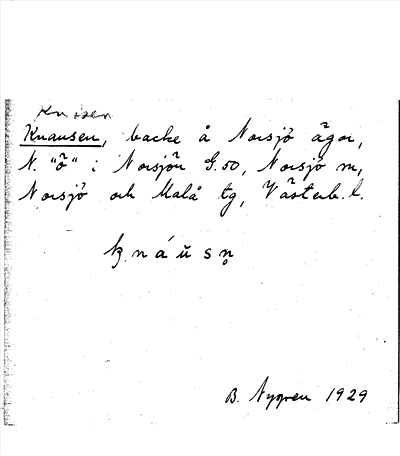 Knausen
Knausen, backe å Norsjö ägor,
N. "ö" i Norsjön G.50, Norsjö m,
Norsjö och Malå tg, Västerb. l.
k̥ n á ŭ s n̥
B. Nygren 1929